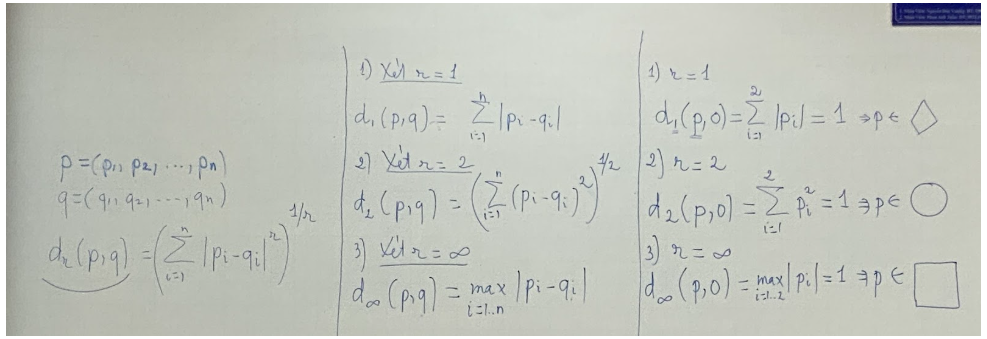 p = (p₁, p₂, ..., pₙ)
q = (q₁, q₂, ..., qₙ)
dᵣ(p,q) = (∑ᵢ₌₁ⁿ |pᵢ - qᵢ|ʳ)^(1/r)
1) Xét r = 1
d₁(p,q) = ∑ᵢ₌₁ⁿ |pᵢ - qᵢ|
2) Xét r = 2
d₂(p,q) = (∑ᵢ₌₁ⁿ (pᵢ - qᵢ)²)^(1/2)
3) Xét r = ∞
d∞(p,q) = max i=1..n |pᵢ - qᵢ|
1) r = 1
d₁(p,0) = ∑ᵢ₌₁² |pᵢ| = 1 ⇒ p ∈ ◇
2) r = 2
d₂(p,0) = ∑ᵢ₌₁² pᵢ² = 1 ⇒ p ∈ ○
3) r = ∞
d∞(p,0) = max i=1..2 |pᵢ| = 1 ⇒ p ∈ □